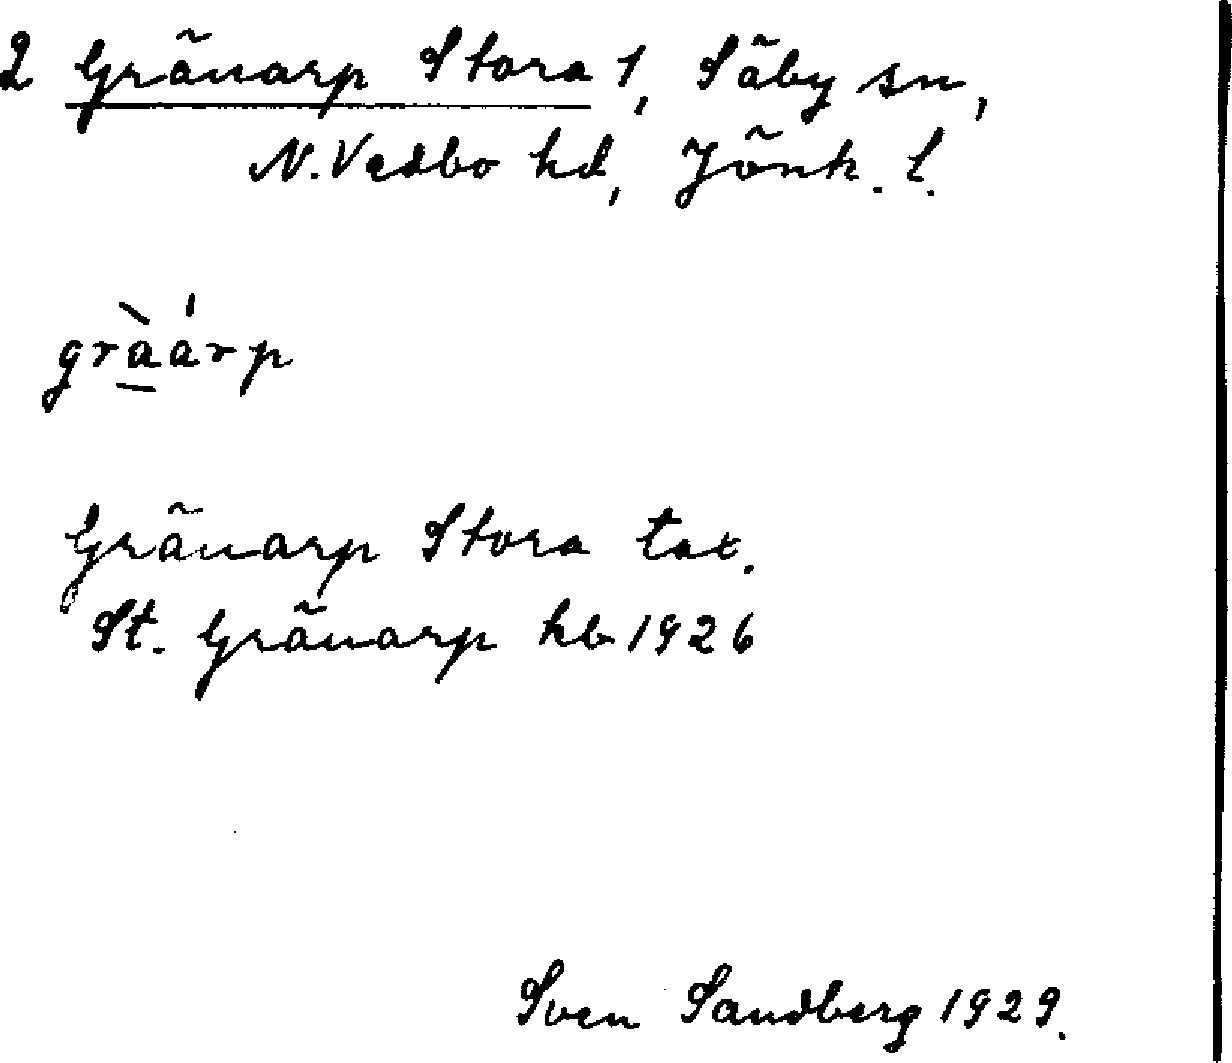 2 Gränarp Stora 1, Säby sn,
N. Vedbo hd, Jönk. l.
grà̱árp
Gränarp Stora tax.
St. Gränarp hb 1926
Sven Sandberg 1929.